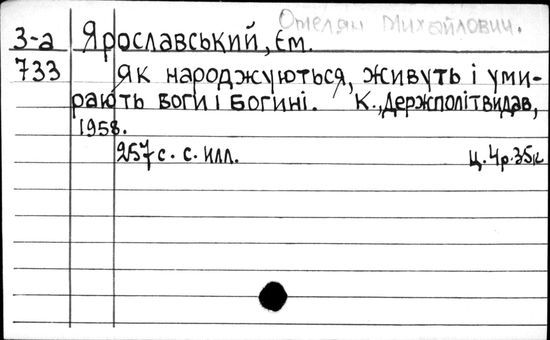 Омелян Михайлович.
3-а Ярославський, Єм.
733 Як народжуються, живуть і уми-
рають боги і богині. К., Держполітвидав,
1958.
257 с. с. илл. Ц. 4р. 35к